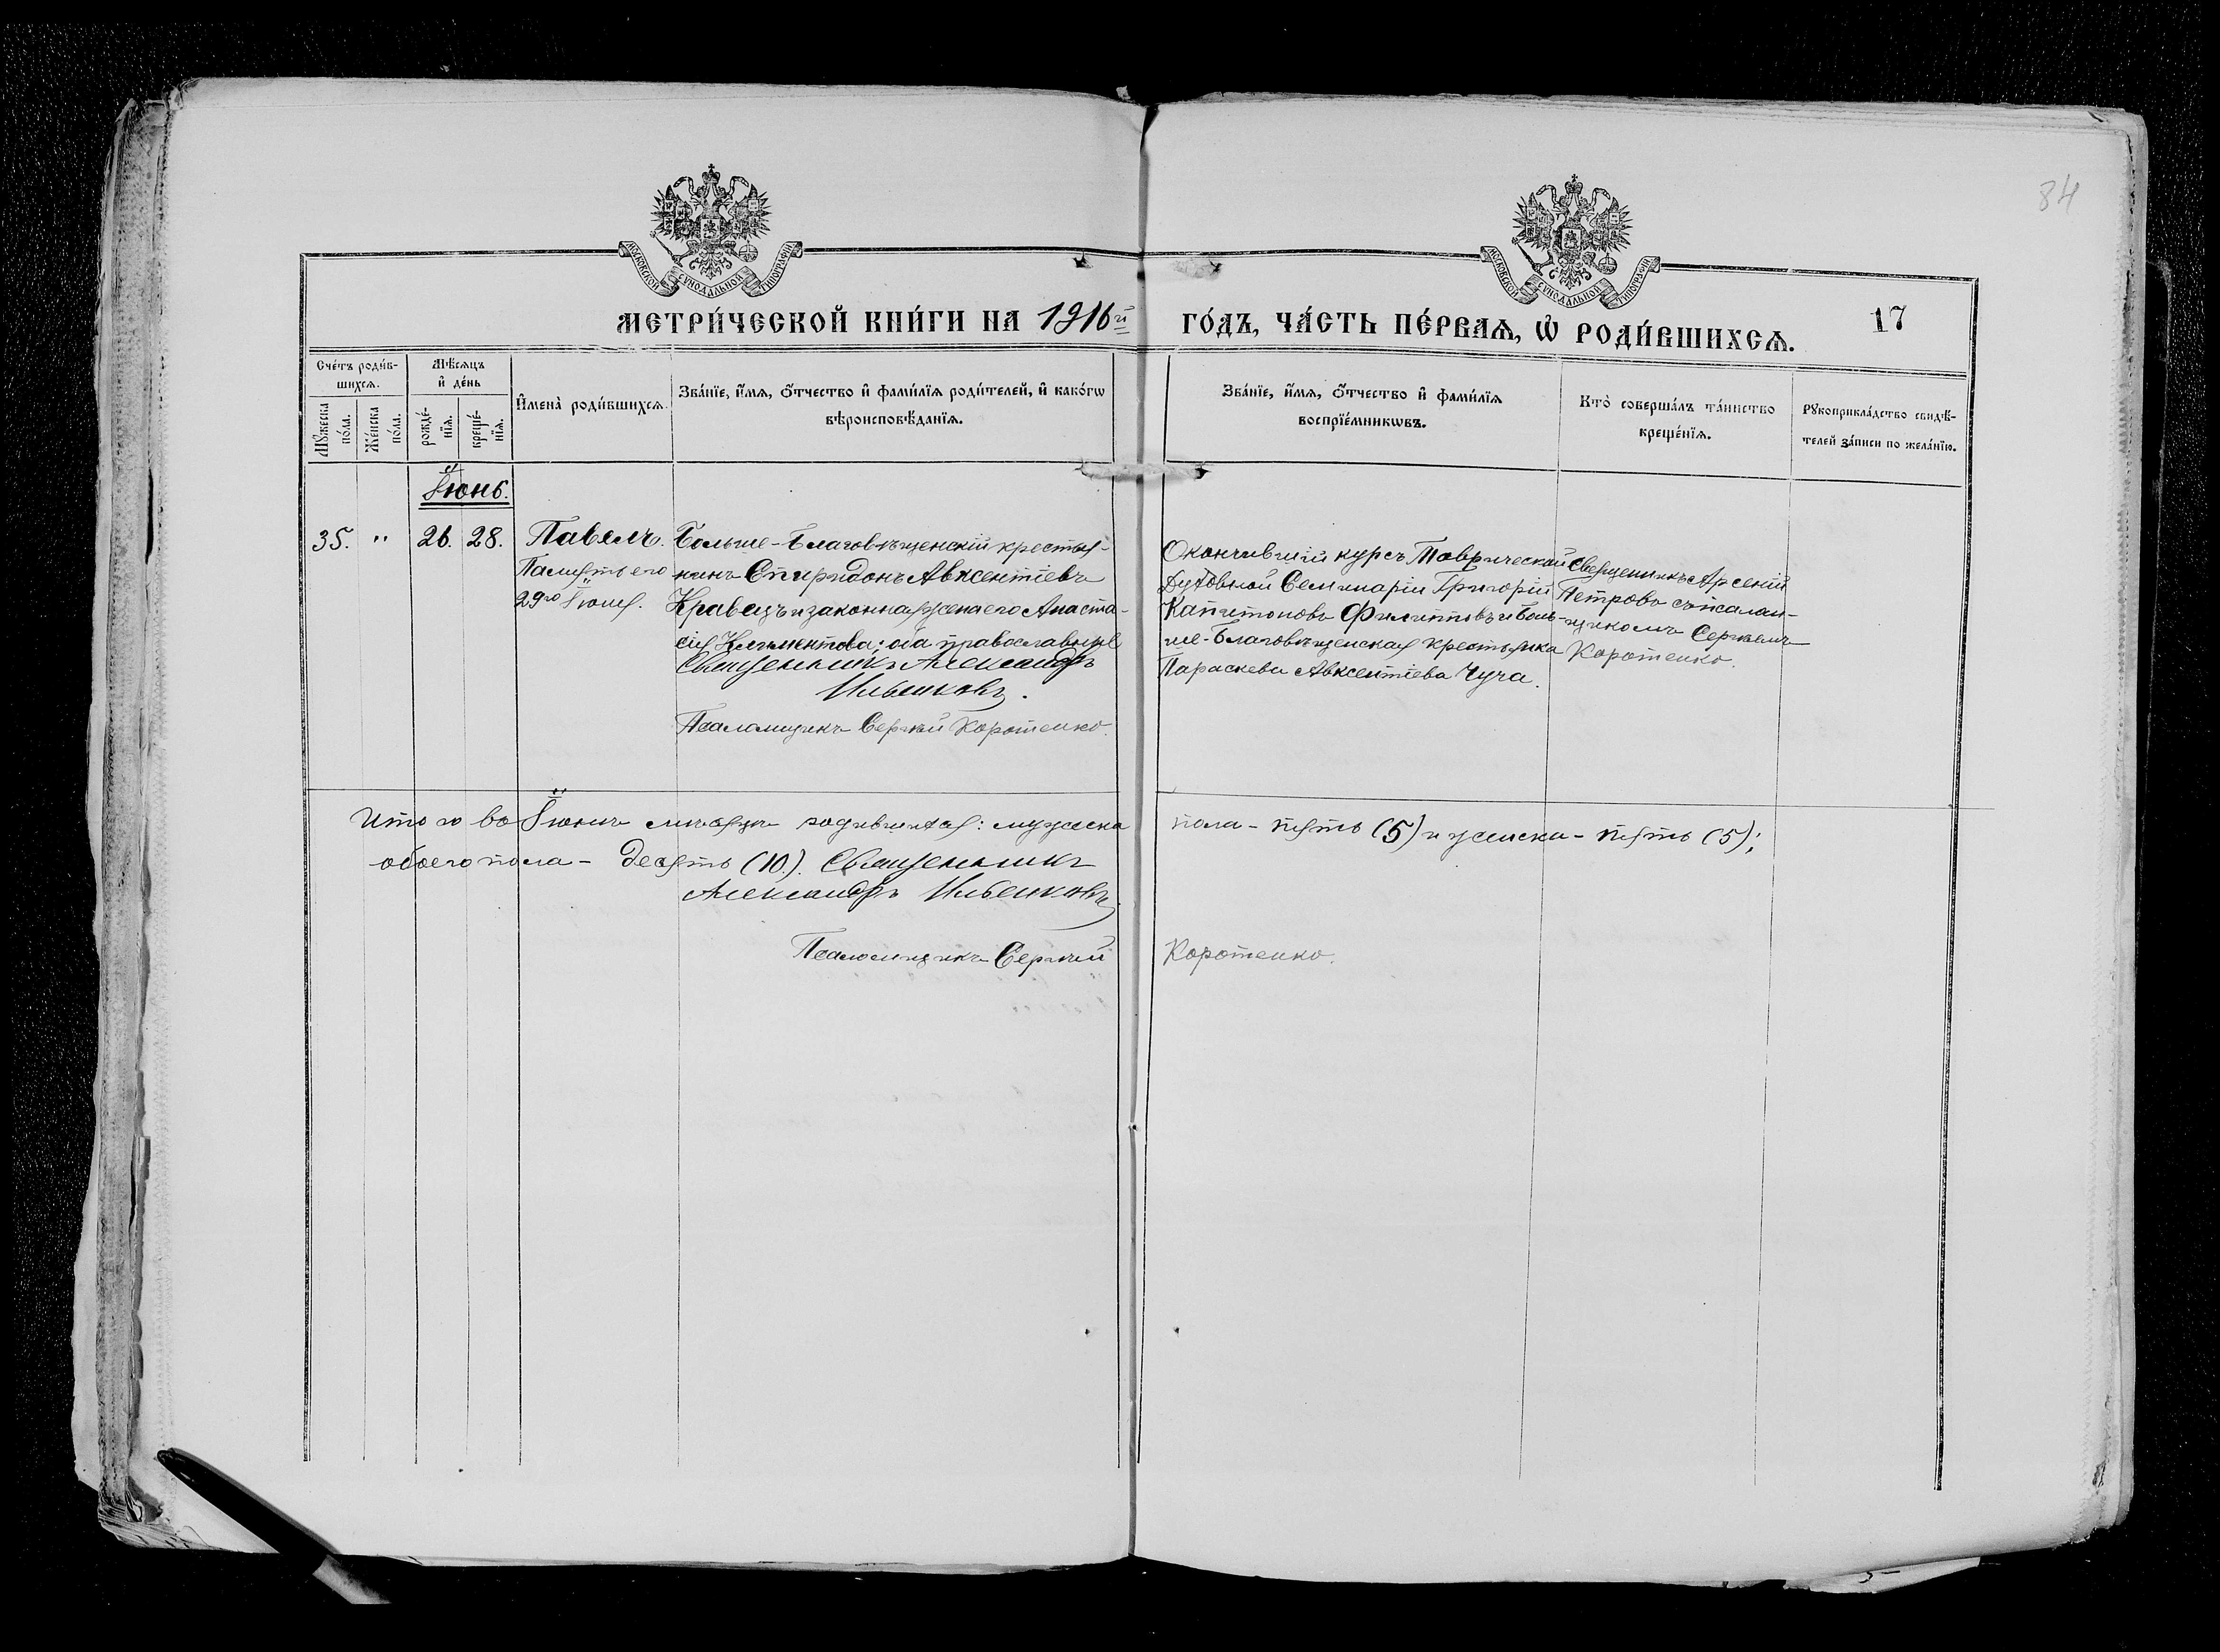 84
МОСКОВСКОЙ СѴНОДАЛЬНОЙ ТИПОГРАФІИ
МОСКОВСКОЙ СѴНОДАЛЬНОЙ ТИПОГРАФІИ
МЕТРИ́ЧЕСКОЙ КНИ́ГИ НА 1916й
ГО́ДЪ, ЧА́СТЬ ПЕ́РВАѦ, Ѡ҆ РОДИ́ВШИХСѦ.
17
Сче́тъ роди́в-
шихсѧ.
Мѣ́сѧцъ
и҆ де́нь
Мꙋ́жеска
по́ла.
Же́нска
по́ла.
рожде́-
нїѧ.
креще́-
нїѧ.
И҆мена̀ роди́вшихсѧ.
Зва́нїе, и҆́мѧ, ѻ҆́тчество и҆ фами́лїѧ роди́телей, и҆ како́гѡ
вѣроисповѣ́данїѧ.
Зва́нїе, и҆́мѧ, ѻ҆́тчество и҆ фами́лїѧ
воспрїе́мникѡвъ.
Кто̀ соверша́лъ та́инство
креще́нїѧ.
Рꙋкоприкла́дство свидѣ́-
телей за́писи по жела́нїю.
Іюнь.
35. " 26. 28. Павелъ.
Память его
29го Іюня.
Больше-Благовѣщенскій крестья-
нинъ Спиридонъ Авксентіевъ
Кравецъ и законная жена его Анаста-
сія Климентова; оба православные
Священникъ Александръ
Ильенковъ.
Псаломщикъ Сергѣй Коротенко.
Окончившій курсъ Таврической
Духовной Семинаріи Григорій
Капитоновъ Филипповъ и Боль-
ше-Благовѣщенская крестьянка
Параскева Авксентіева Чуча.
Священникъ Арсеній
Петровъ съ псалом-
щикомъ Сергѣемъ
Коротенко.
Итого въ Іюнѣ мѣсяцѣ родившихся: мужеска пола - пять (5) и женска - пять (5);
обоего пола - десять (10). Священникъ
Александръ Ильенковъ.
Псаломщикъ Сергѣй Коротенко.